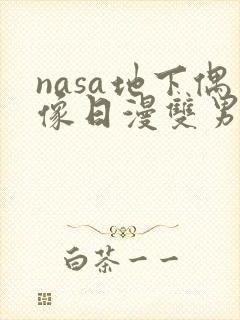 nasa地下偶
像日漫雙男
白茶一一